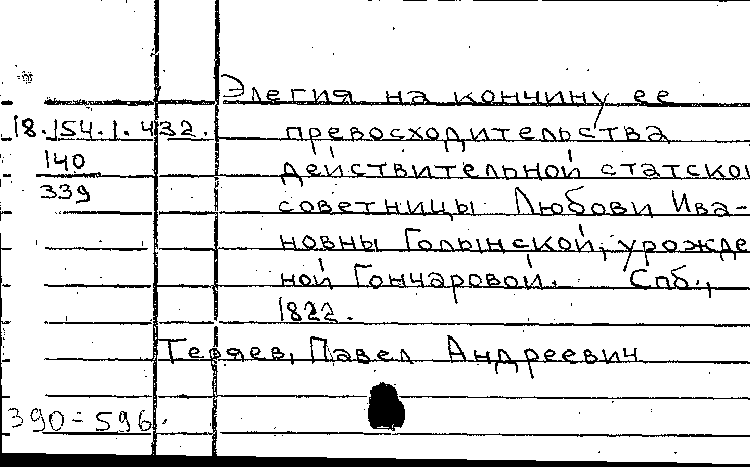 Элегия на кончину ее
18.154.1.432. превосходительства
140 действительной статской
339
советницы Любови Ива-
новны Голынской, урожде
ной Гончаровой. Спб.,
1822.
Теряев, Павел Андреевич
390=596.